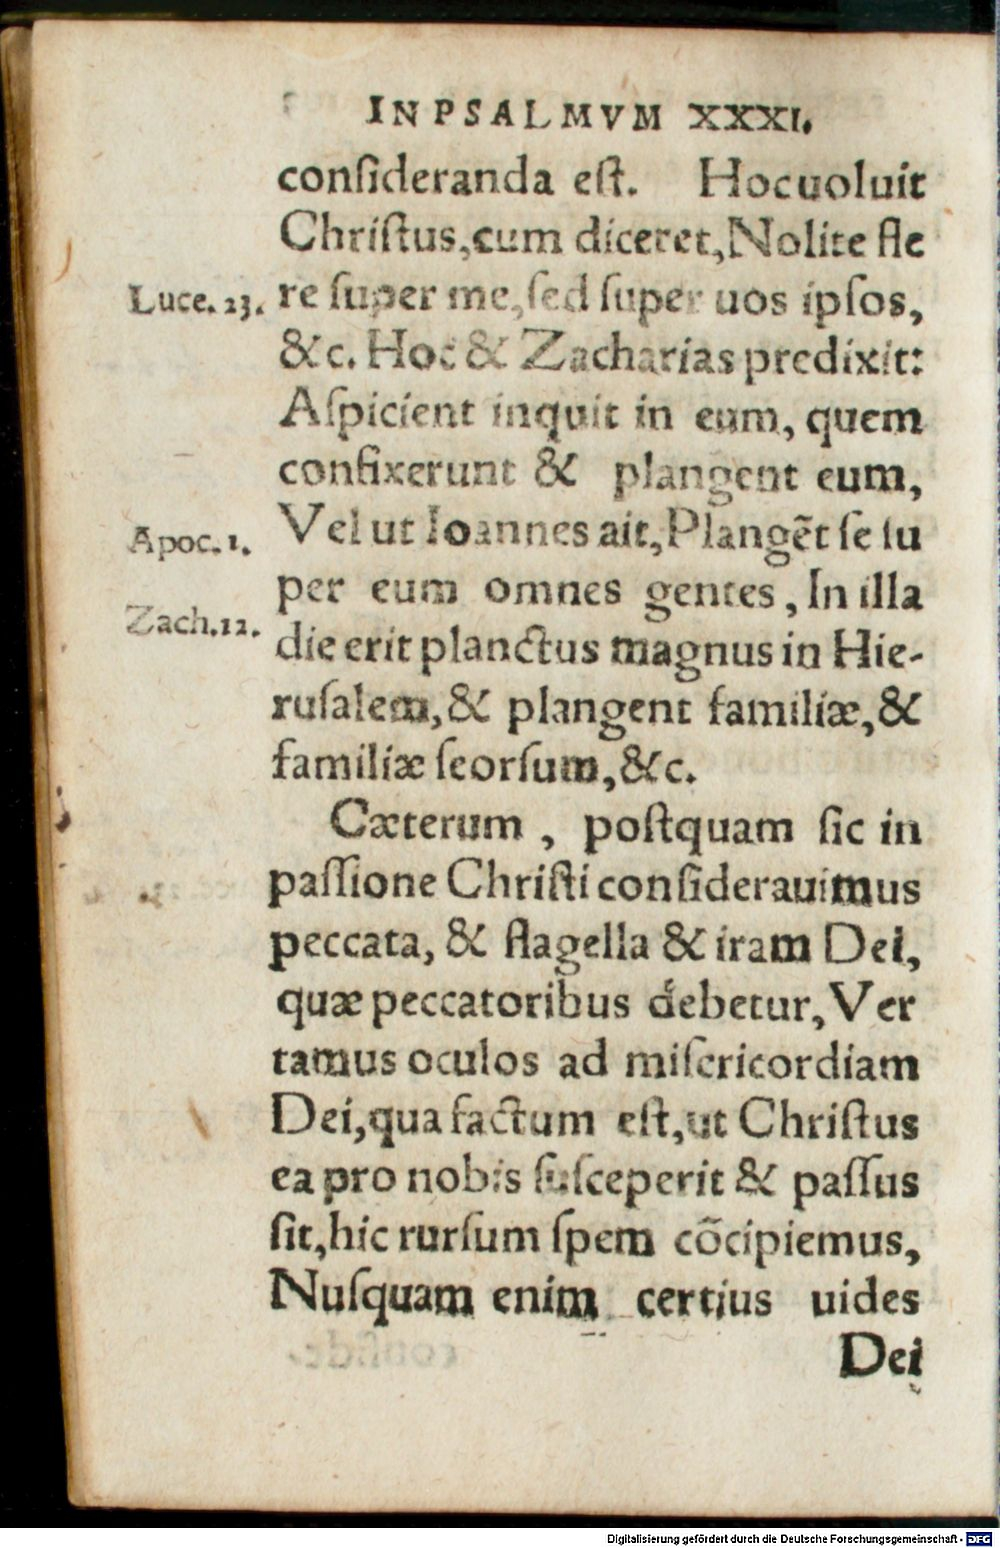 IN PSALMVM XXXI.
conſideranda eſt. Hoc uoluit
Chriſtus, cum diceret, Nolite fle
Luce. 23. re ſuper me, ſed ſuper uos ipſos,
&c. Hoc & Zacharias predixit:
Aſpicient inquit in eum, quem
confixerunt & plangent eum,
Apoc. 1. Vel ut Ioannes ait, Plangẽt ſe ſu
per eum omnes gentes, In illa
Zach. 12. die erit planctus magnus in Hie-
ruſalem, & plangent familiæ, &
familiæ ſeorſum, &c.
Cæterum, poſtquam ſic in
paſſione Chriſti conſiderauimus
peccata, & flagella & iram Dei,
quæ peccatoribus debetur, Ver
tamus oculos ad miſericordiam
Dei, qua factum eſt, ut Chriſtus
ea pro nobis ſuſceperit & paſſus
ſit, hic rurſum ſpem cõcipiemus,
Nuſquam enim certius uides
Dei
Digitalisierung gefördert durch die Deutsche Forschungsgemeinschaft - DFG